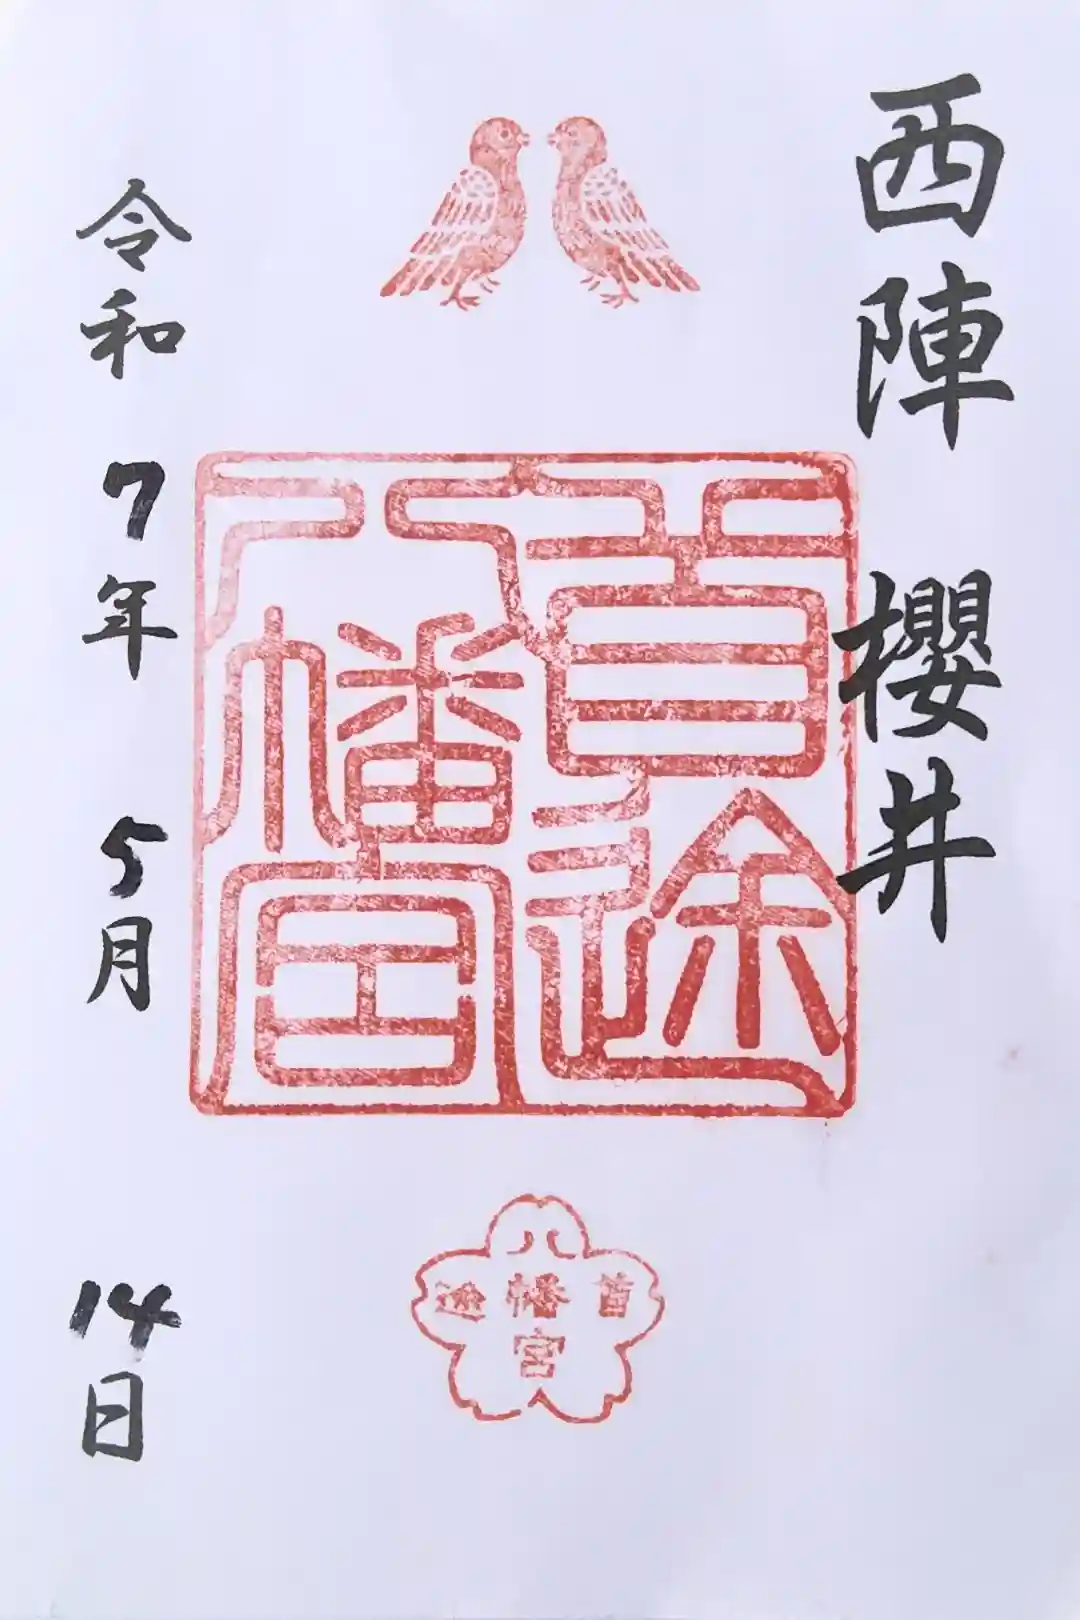 西陣 櫻井
首途
八幡宮
令和7年5月14日
八
首幡途
宮